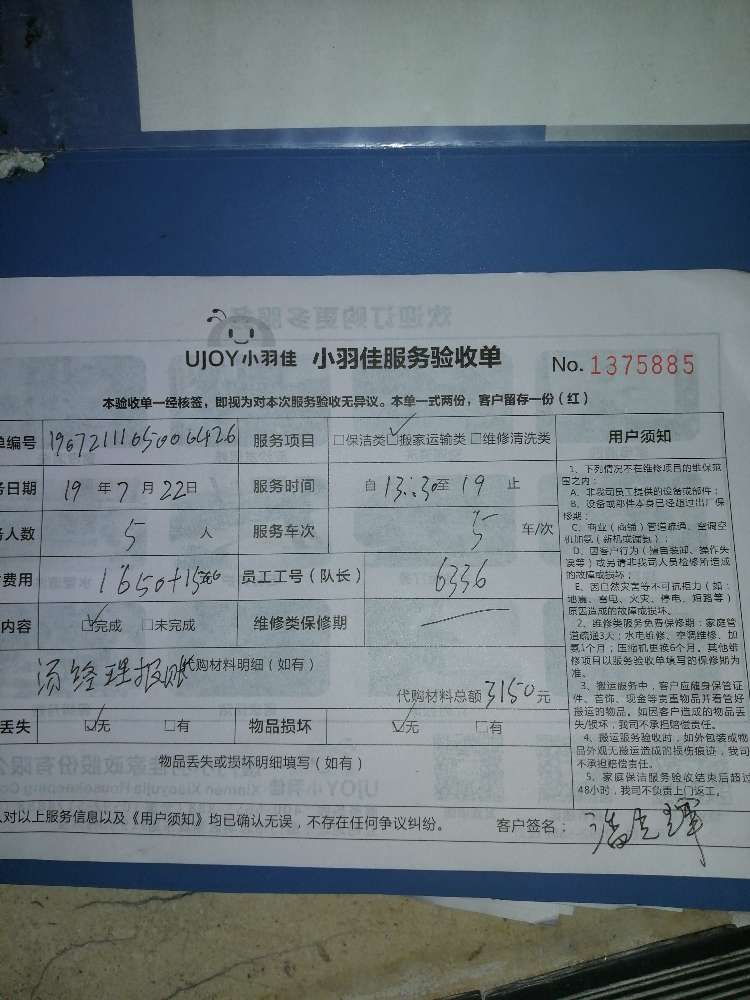 UJOY小羽佳 小羽佳服务验收单 No. 1375885
本验收单一经核签，即视为对本次服务验收无异议。本单一式两份，客户留存一份（红）
单编号 1907211105000426 服务项目 □保洁类☑搬家运输类 □维修清洗类 用户须知
务日期 19 年 7 月 22日 服务时间 自 13:30至 19 止
务人数 5 人 服务车次 5 车/次
费用 1650+1500 员工工号（队长） 6336
内容 ☑完成 □未完成 维修类保修期
汤经理报账 代购材料明细（如有）
代购材料总额 3150 元
丢失 ☑无 □有 物品损坏 ☑无 □有
物品丢失或损坏明细填写（如有）
人对以上服务信息以及《用户须知》均已确认无误，不存在任何争议纠纷。 客户签名：
1、下列情况不在维修项目的维保范
围之内：
A、非我司员工提供的设备或部件；
B、设备或部件本身已经超过出厂保
修期；
C、商业（商铺）管道疏通、空调空
机加氨（新机或漏氨）；
D、因客户行为（擅自装卸、操作失
误等）或另请非我司人员检修所造成
的故障或损坏；
E、因自然灾害等不可抗拒力（如：
地震、雷电、火灾、停电、短路等）
原因造成的故障或损坏。
2、维修类服务免费保修期：家庭管
道疏通3天；水电维修、空调维修、加
氨1个月；压缩机更换6个月。其他维
修项目以服务验收单填写的保修期为
准。
3、搬运服务中，客户应随身保管证
件、首饰、现金等贵重物品并看管好
搬运的物品。如因客户造成的物品丢
失/损坏，我司不承担赔偿责任。
4、搬运服务验收时，如外包装或物
品外观无搬运造成的损伤痕迹，我司
不承担赔偿责任。
5、家庭保洁服务验收结束后超过
48小时，我司不负责上门返工。